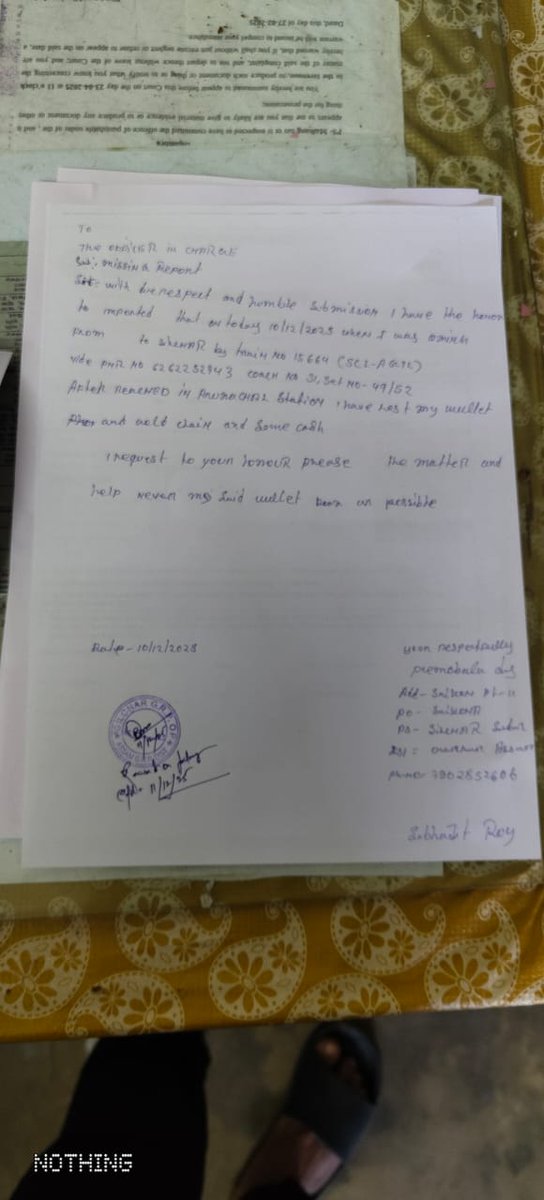 summons
PS- Malugang has or is suspected to have committed the offence of punishable under of the , and it
appears to me that you are likely to give material evidence or to produce any document or other
thing for the prosecution;
You are hereby summoned to appear before this Court on the day 23-04-2025 at 11 o'clock
in the forenoon, to produce such document or thing or to testify what you know concerning the
matter of the said complaint, and not to depart thence without leave of the Court; and you are
hereby warned that, if you shall without just excuse neglect or refuse to appear on the said date, a
warrant will be issued to compel your attendance.
Dated, this day of 27-02-2025
To
The OFFICER IN CHARGE
Sub: missing Report
Sir with due respect and humble submission I have the honor
to reported that on today 10/12/2025 when I was coming
from to SILCHAR by train No 15664 (SCL-AGTL)
vide PNR NO 6262252943 coach NO S1, Set NO- 49/52
After REACHED IN ARUNACHAL Station I have lost my wallet
and gold chain and some cash
I request to your honour please the matter and
help my said wallet as possible
Date- 10/12/2025
your respectfully
premobala das
Add-
PO-
PS- SILCHAR Sadar
SILCHAR G.R.P.
11/12/25
Subhajit Roy
NOTHING